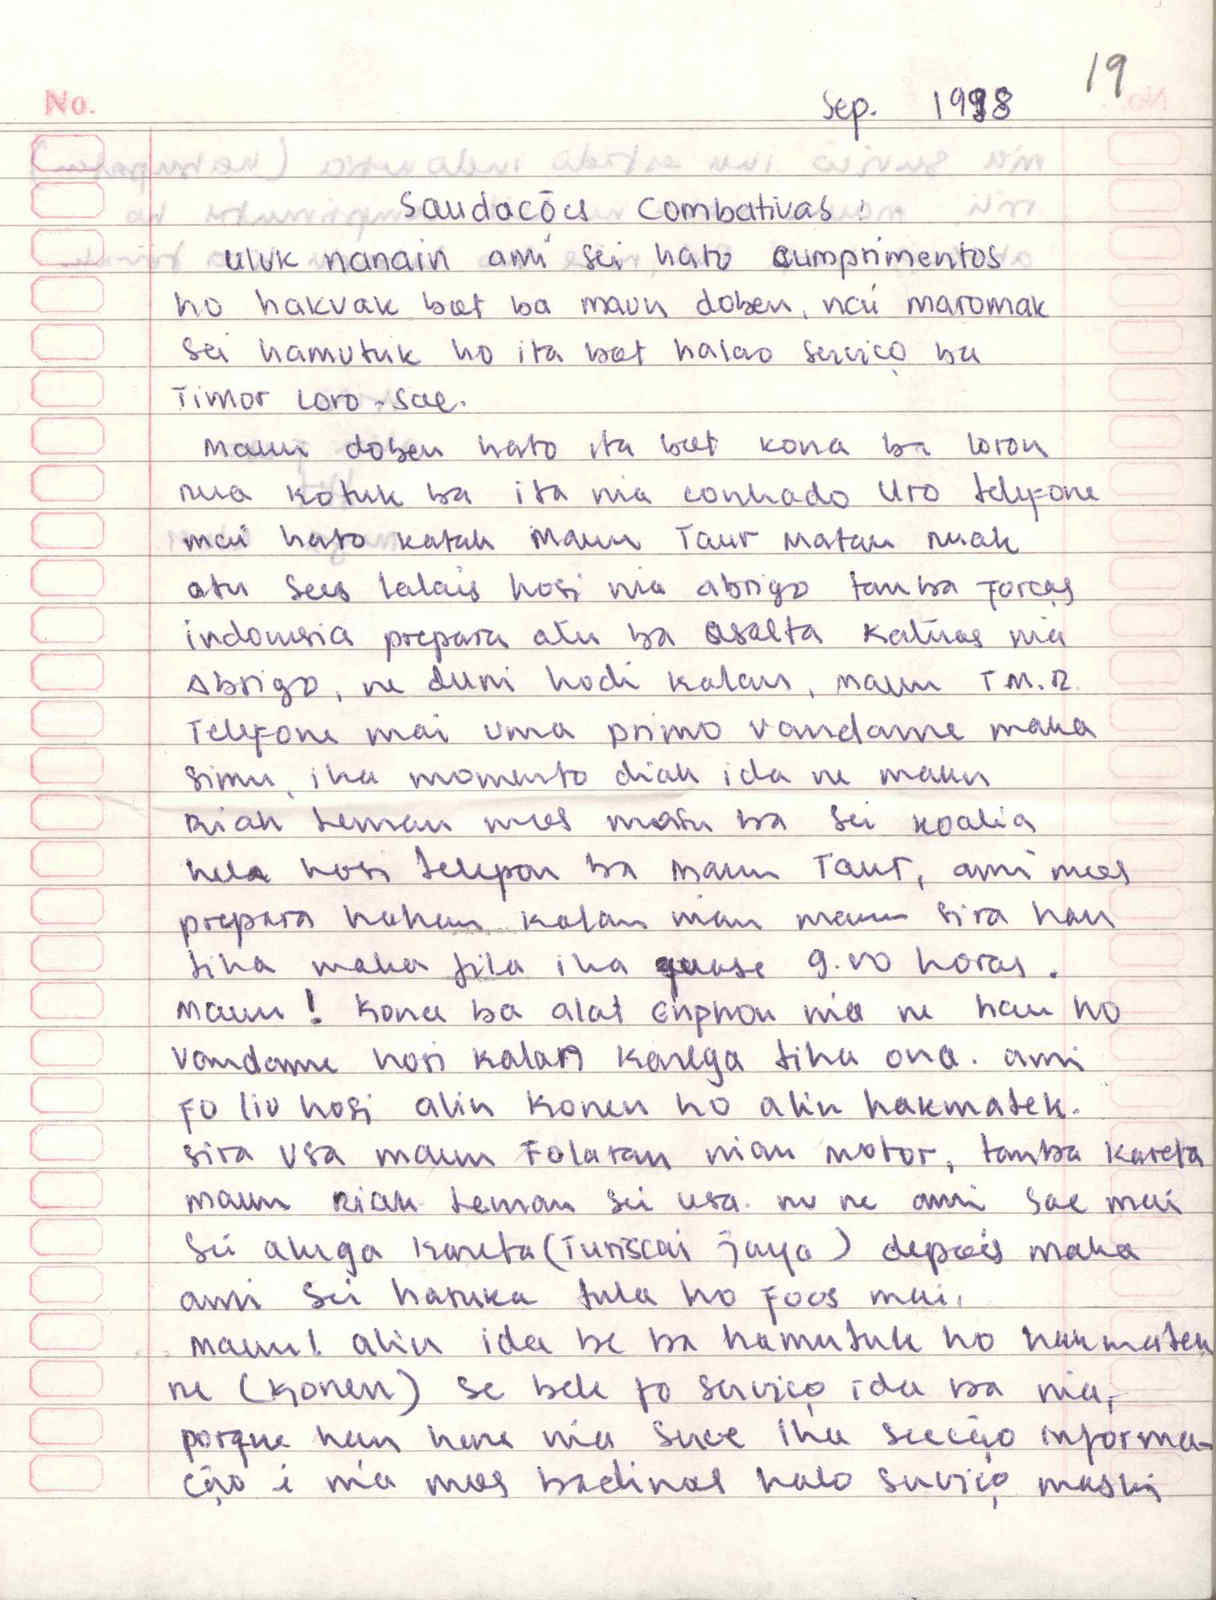 19
No.
Sep. 1998
Saudacões Combativas!
Uluk nanain ami sei hato cumprimentos
ho hakuak bot ba maun doben, nai maromak
sei hamutuk ho ita bot halao serviço ba
Timor Loro-sae.
Maun doben hato ita bot kona ba loron
rua kotuk ba ita nia conhado Uro telefone
mai hato katak maun Taur Matan ruak
atu sees lalais hosi nia abrigo tamba forças
indonesia prepara atu ba asalta Katuas nia
Abrigo, ne duni hodi kalan, maun T.M.R.
Telefone mai uma primo Vandame maka
simu, iha momento diak ida ne maun
Riak Leman mos mosu ba sei koalia
hela hosi telepon ba maun Taur, ami mos
prepara hahan kalan nian maun sira han
tiha maka fila iha quase 9.00 horas.
Maun! Kona ba alat Enphon nia ne hau ho
Vandame hosi kalan karega tiha ona. ami
fo liu hosi alin Konen ho alin hakmatek.
sira usa maun Folaran nian motor, tamba kareta
maun Riak Leman sei usa. no ne ami sae mai
sei aluga kareta (Turiscai jaya) depois maka
ami sei haruka tula ho foos mai.
Maun! alin ida be ba hamutuk ho hakmatek
ne (Konen) se bele fo serviço ida ba nia,
porque hau hare nia iha secção informa-
ção i nia mos badinas halo serviço maski